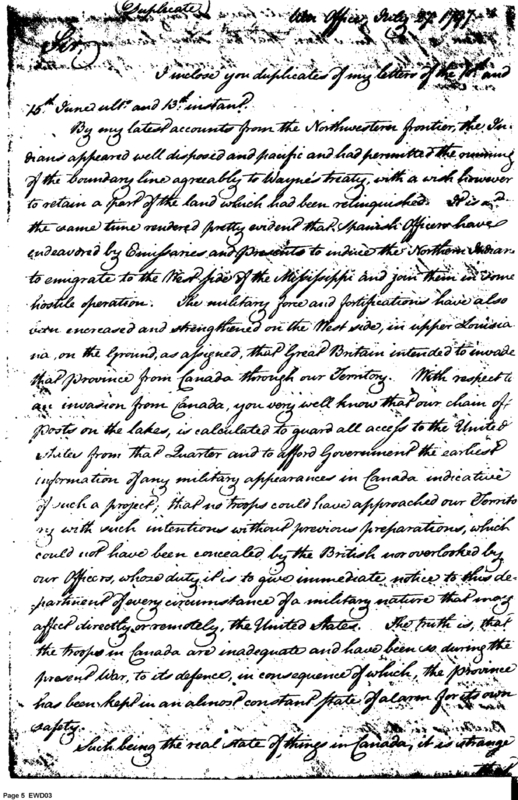 (Duplicate)
War Office, July 27. 1797.
Sir,
I inclose you duplicates of my letters of the and
15th June ulto. and 13th instant.
By my latest accounts from the Northwestern frontier, the In-
dians appeared well disposed and pacific and had permitted the running
of the boundary line agreably to Wayne's treaty, with a wish however
to retain a part of the land which had been relinquished. It is at
the same time rendered pretty evident that Spanish Officers have
endeavored by Emissaries and presents to induce the Northern Indians
to emigrate to the West side of the Mississippi and join them in some
hostile operation. The military force and fortifications have also
been encreased and strengthened on the West side, in upper Louisia
na, on the Ground, as assigned, that Great Britain intended to invade
that province from Canada through our Territory. With respect to
an invasion from Canada, you very well know that our chain of
Posts on the lakes, is calculated to guard all access to the United
States from that Quarter and to afford Government the earliest
information of any military appearances in Canada indicative
of such a project, that no troops could have approached our Territo
ry with such intentions without previous preparations, which
could not have been concealed by the British nor overlooked by
our Officers, whose duty it is to give immediate notice to this de-
partment of every circumstance of a military nature that may
affect directly or remotely, the United States. The truth is, that
the troops in Canada are inadequate and have been so, during the
present War, to its defence, in consequence of which, the Province
has been kept in an almost constant state of alarm for its own
safety.
Such being the real state of things in Canada, it is strange
that
Page 5 EWD03